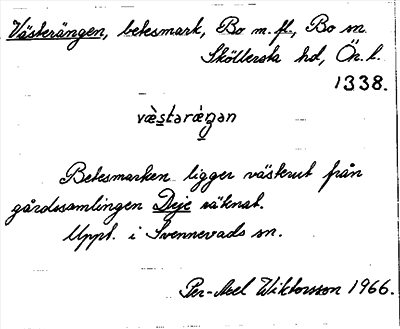 Västerängen, betesmark, Bo m.fl., Bo sn
Sköllersta hd, Ör. l.
1338.
væ̀staræŋan
Betesmarken ligger västerut från
gårdssamlingen Deje räknat.
Uppt. i Svennevads sn.
Per-Axel Wiktorsson 1966.